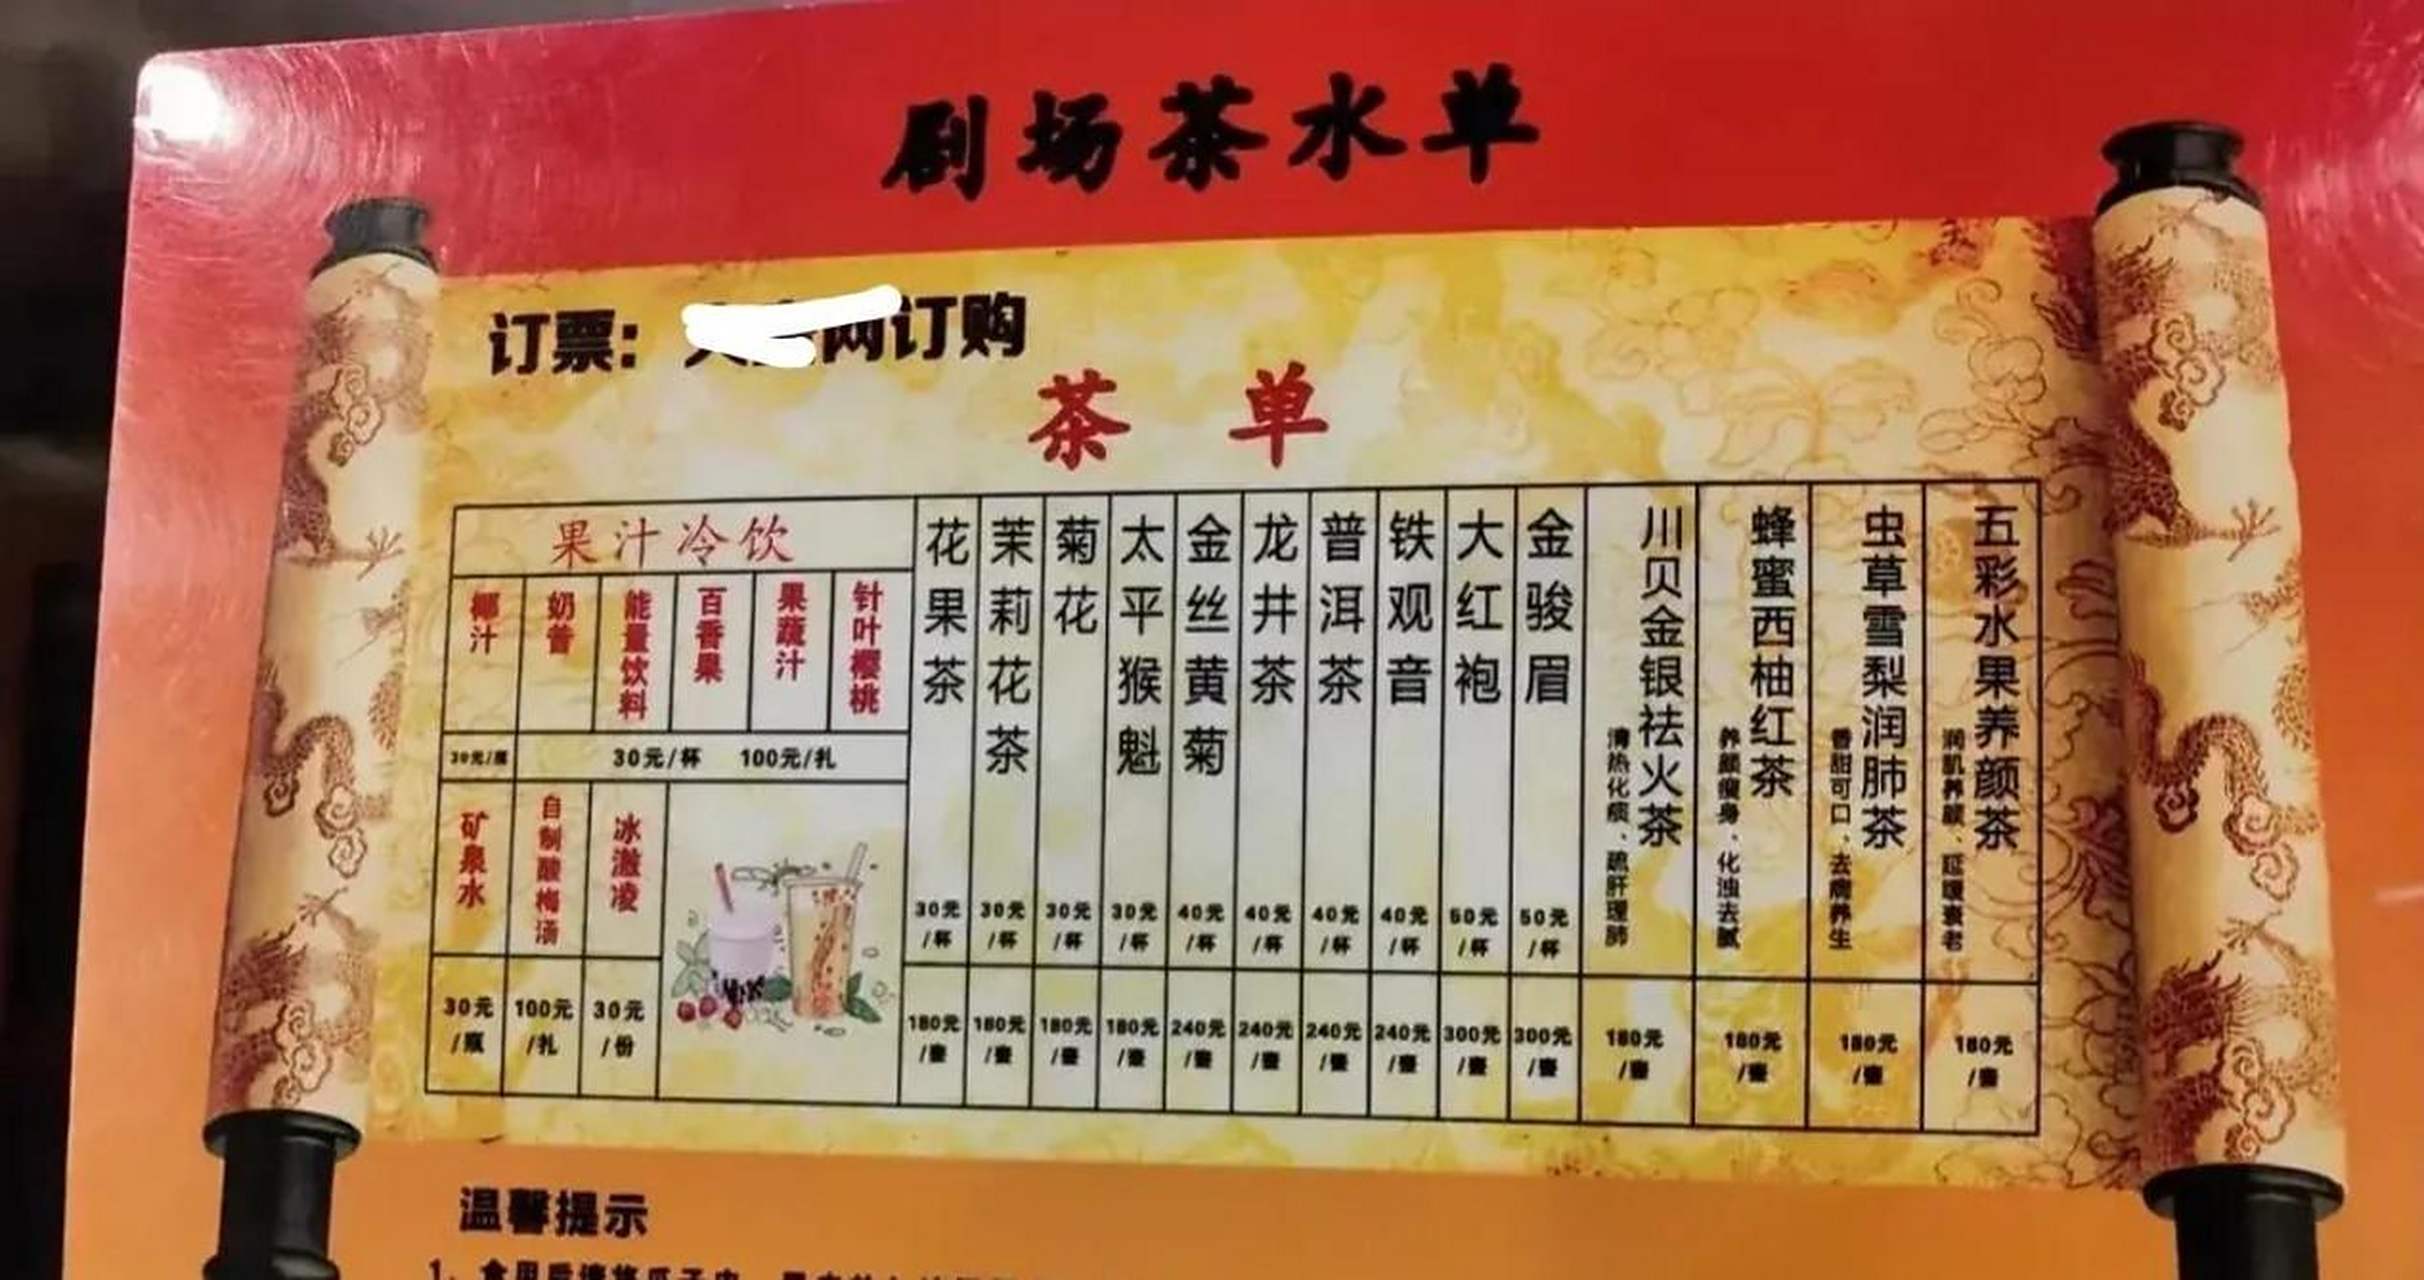 剧场茶水单
订票：
网订购
茶单
果汁冷饮
椰汁
奶昔
能量饮料
百香果
果蔬汁
针叶樱桃
30元/瓶
30元/杯 100元/扎
矿泉水
自制酸梅汤
冰激凌
30元/瓶
100元/扎
30元/份
花果茶
30元/杯
180元/壶
茉莉花茶
30元/杯
180元/壶
菊花
30元/杯
180元/壶
太平猴魁
30元/杯
180元/壶
金丝黄菊
40元/杯
240元/壶
龙井茶
40元/杯
240元/壶
普洱茶
40元/杯
240元/壶
铁观音
40元/杯
240元/壶
大红袍
50元/杯
300元/壶
金骏眉
50元/杯
300元/壶
川贝金银祛火茶
清热化痰、疏肝理肺
180元/壶
蜂蜜西柚红茶
养颜瘦身、化浊去腻
180元/壶
虫草雪梨润肺茶
香甜可口、去燥养生
180元/壶
五彩水果养颜茶
润肌养颜、延缓衰老
180元/壶
温馨提示